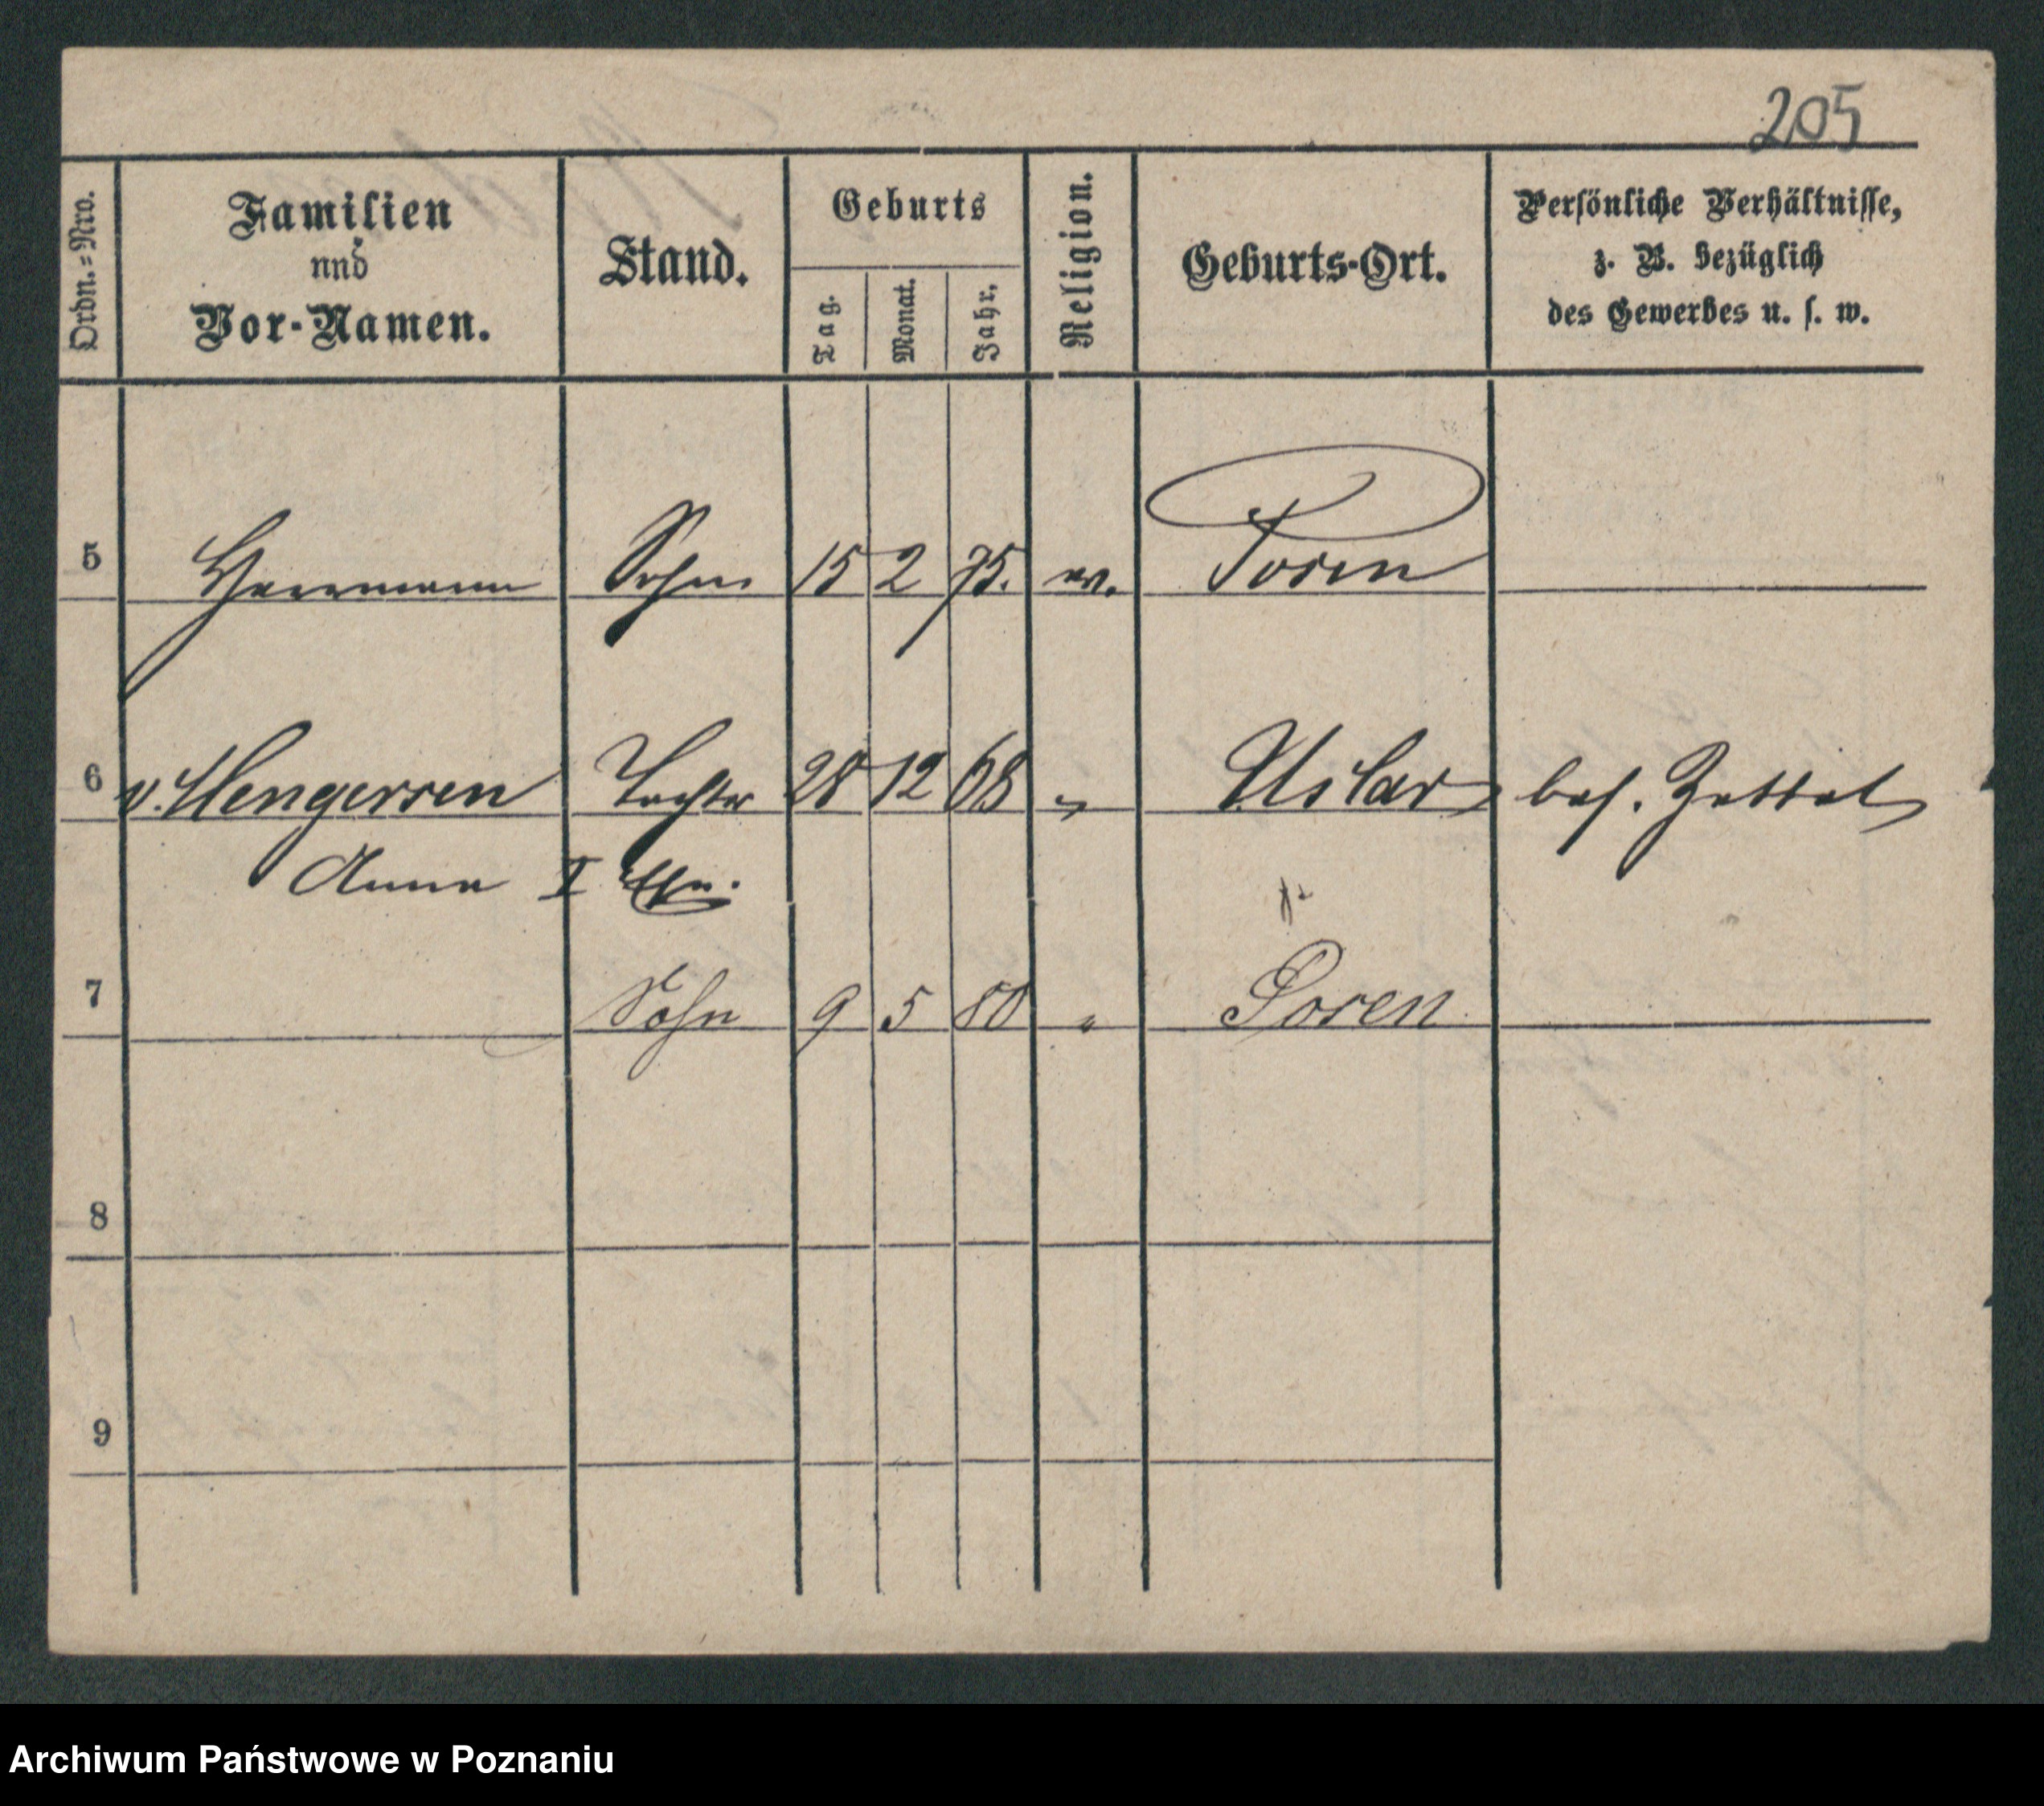 205
Ordn.=Nro.
Familien
und
Vor-Namen.
Stand.
Geburts
Tag.
Monat.
Jahr.
Religion.
Geburts-Ort.
Persönliche Verhältnisse,
z. B. bezüglich
des Gewerbes u. s. w.
5 Herrmann Sohn 15 2 75. ev. Posen
6 v. Hengersen Tochter 28 12 68 " Uslar bes. Zettel
Anna I
7 Sohn 9 5 80 " Posen
8
9
Archiwum Państwowe w Poznaniu